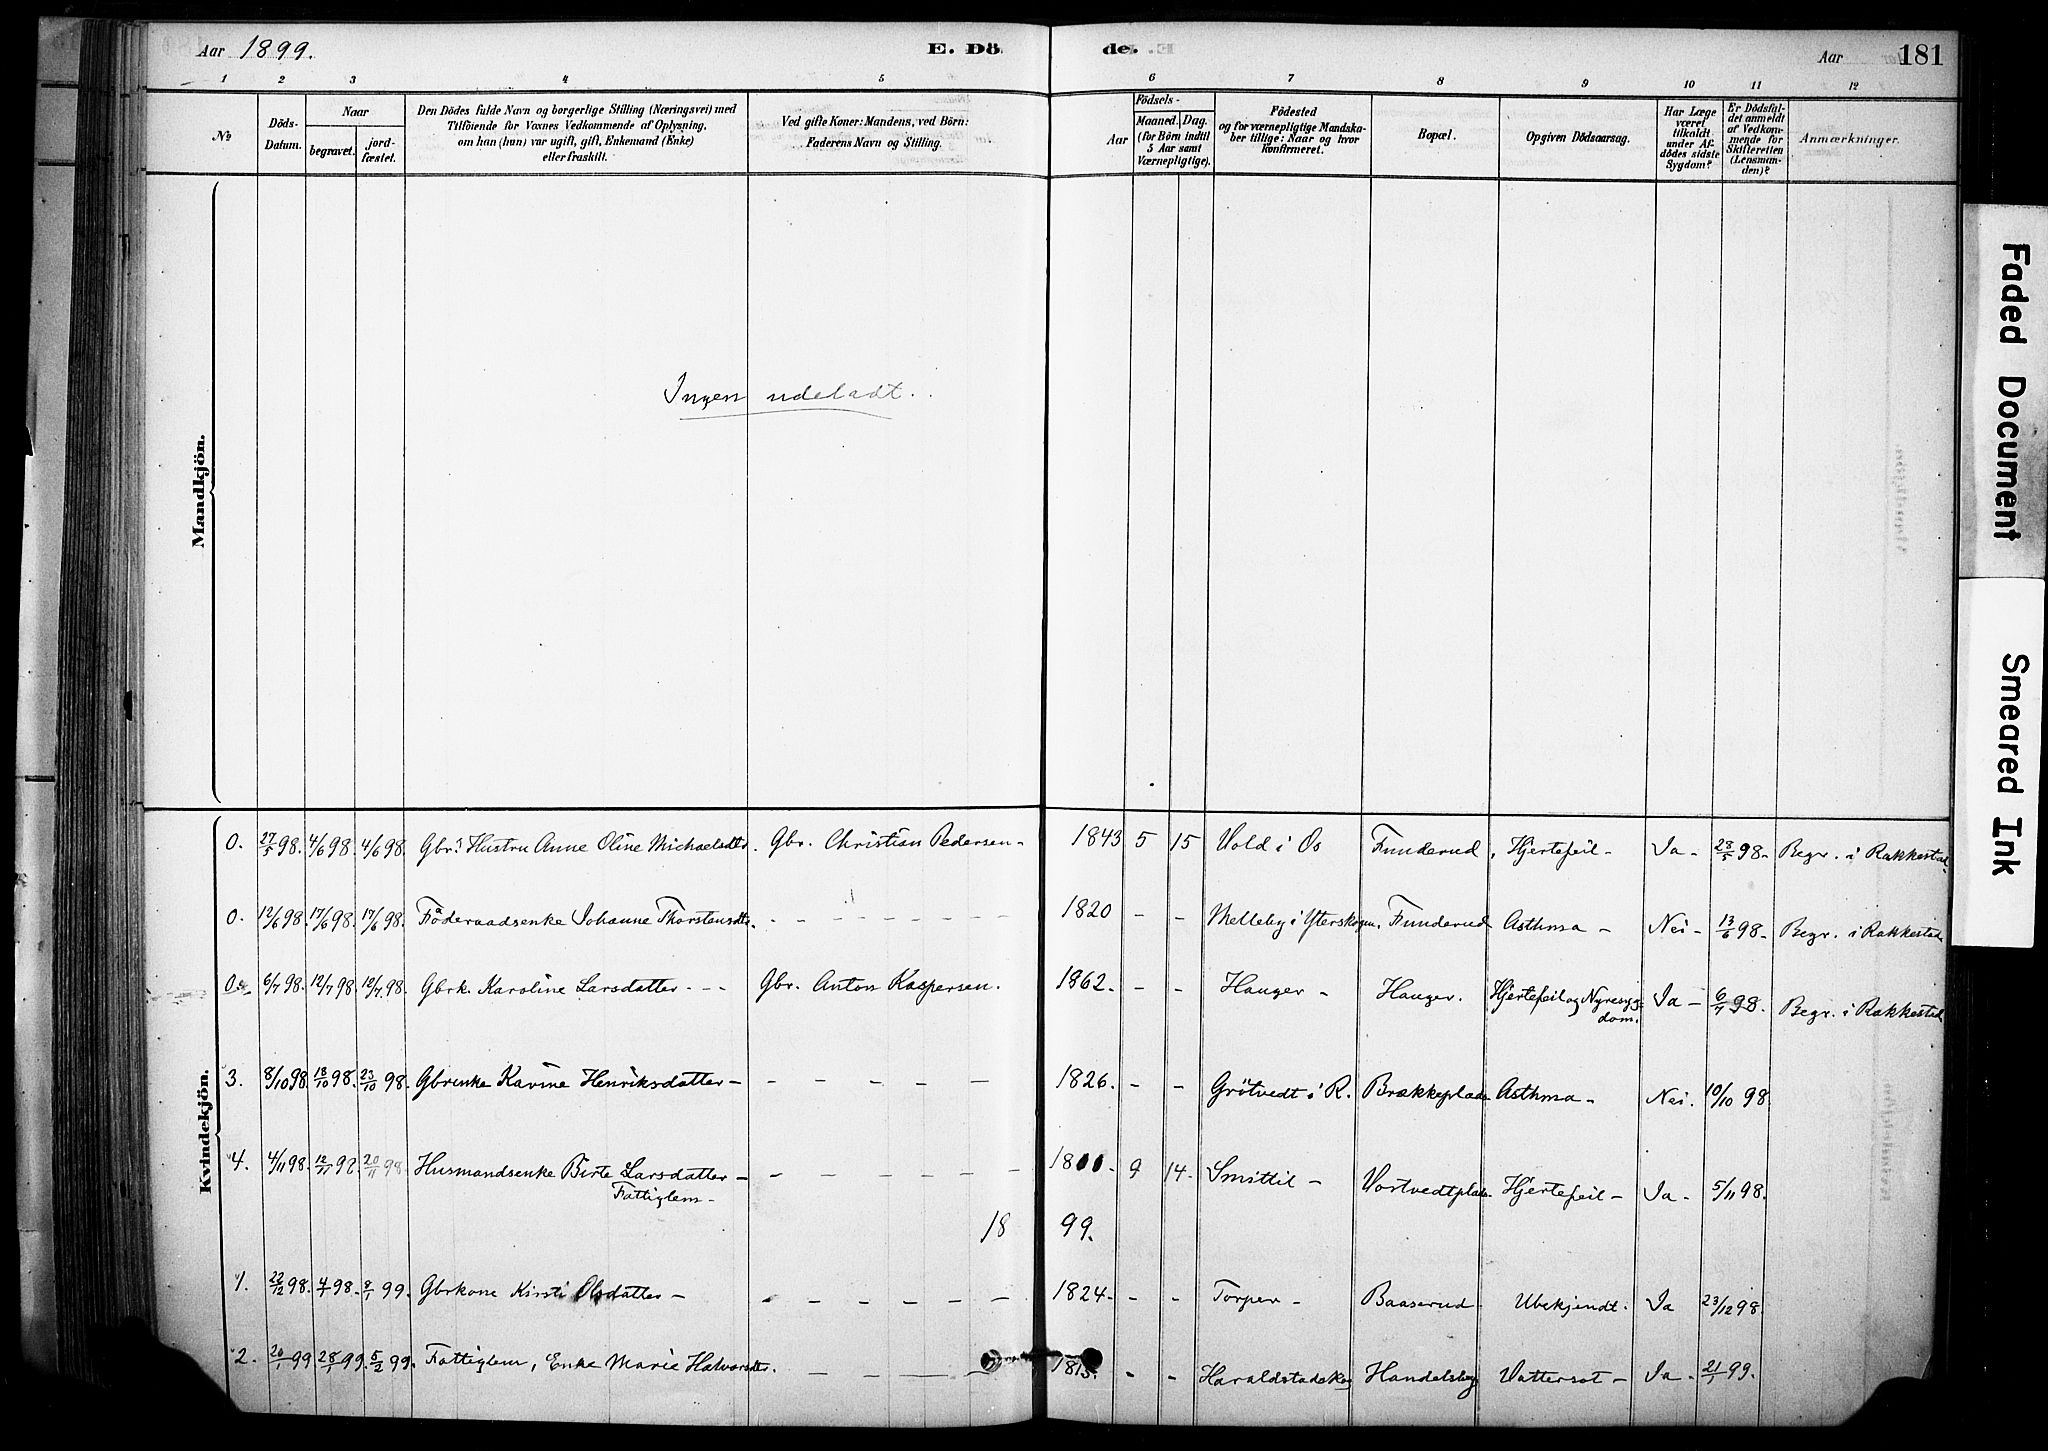 Aar 1899.
E. Dö
de.
Aar 181
1 2 3 4 5 6 7 8 9 10 11 12
№
Döds-Datum.
Naar
begravet.
jord-fæstet.
Den Dödes fulde Navn og borgerlige Stilling (Næringsvei) med
Tilföiende for Voxnes Vedkommende af Oplysning,
om han (hun) var ugift, gift, Enkemand (Enke)
eller fraskilt.
Ved gifte Koner: Mandens, ved Börn:
Faderens Navn og Stilling.
Aar
Födsels-
Maaned. Dag.
(for Börn indtil
5 Aar samt
Værnepligtige).
Födested
og for værnepligtige Mandska-
ber tillige: Naar og hvor
konfirmeret.
Bopæl.
Opgiven Dödsaarsag.
Har Læge
været
tilkaldt
under Af-
dödes sidste
Sygdom?
Er Dödsfal-
det anmeldt
af Vedkom-
mende for
Skifteretten
(Lensman-
den)?
Anmærkninger.
Mandkjön.
Ingen udeladt.
Kvindekjön.
0. 27/5 98. 4/6 98. 4/6 98. Gbr.s Hustru Anne Oline Michaelsdtr. Gbr. Christian Pedersen - 1843 5 15 Vold i Os Funderud Hjertefeil - Ja - 28/5 98. Begr. i Rakkestad
0. 12/6 98. 17/6 98. 17/6 98. Föderaadsenke Johanne Thorstensdtr. - - - - - - 1820 - - Melleby i Yterskogen. Funderud Asthma - Nei - 13/6 98. Begr. i Rakkestad
0. 6/7 98. 12/7 98. 12/7 98. Gbrk. Karoline Larsdatter - - - Gbr. Anton Kaspersen. 1862. - - Hauger - Hauger. Hjertefeil og Nyresyg-
dom. Ja - 6/7 98. Begr. i Rakkestad
3. 8/10 98. 18/10 98. 23/10 98. Gbrenke Karine Henriksdatter - - - - - - 1826. - - Grötvedt i R. Brækkeplads Asthma - Nei. 10/10 98.
4. 4/11 98. 12/11 98. 20/11 98. Husmandsenke Birte Larsdatter - - - - - - 9 14. Smittil - Vostvedtplads. Hjertefeil - Ja - 5/11 98.
Fattiglem -
18 99.
1. 22/12 98. 4/1 98. 8/1 99. Gbrkone Kirsti Olsdatter - - - - - - 1824 - - - Torper - Baaserud. Ubekjendt. Ja 23/12 98.
2. 20/1 99. 28/1 99. 5/2 99. Fattiglem, Enke Marie Halvorsdtr. - - - - 1815. - - Haraldstadskog Handelsby Vattersot - Ja - 21/1 99.
Faded Document
Smeared Ink